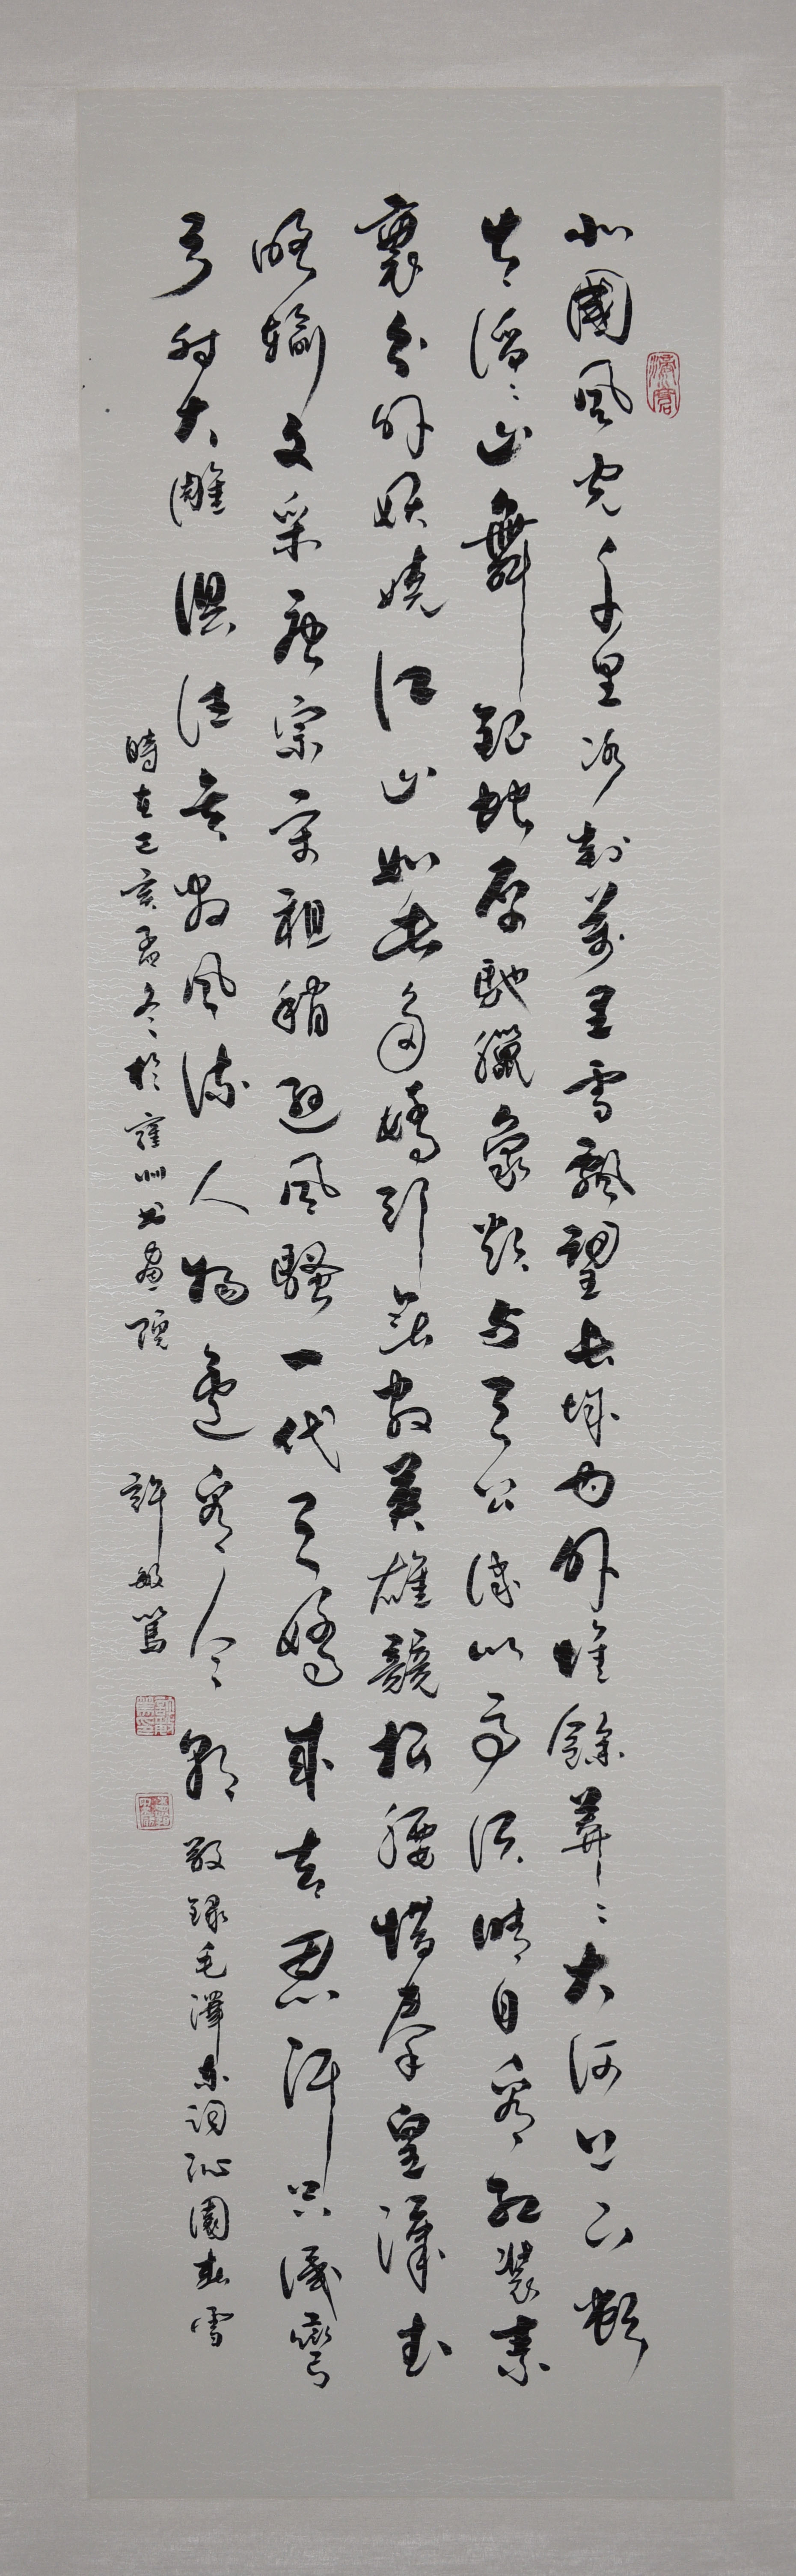 北國風光千里冰封萬里雪飄望長城內外惟餘莽〻大河上下頓
失滔〻山舞銀蛇原馳臘象欲與天公試比高須晴日看紅裝素
裹分外妖嬈江山如此多嬌引無數英雄競折腰惜秦皇漢武
略輸文采唐宗宋祖稍遜風騷一代天嬌成吉思汗只識彎
弓射大雕俱往矣數風流人物還看今朝 敬錄毛澤東詞沁園春雪
時在己亥孟冬於 書畫院 許敏篤